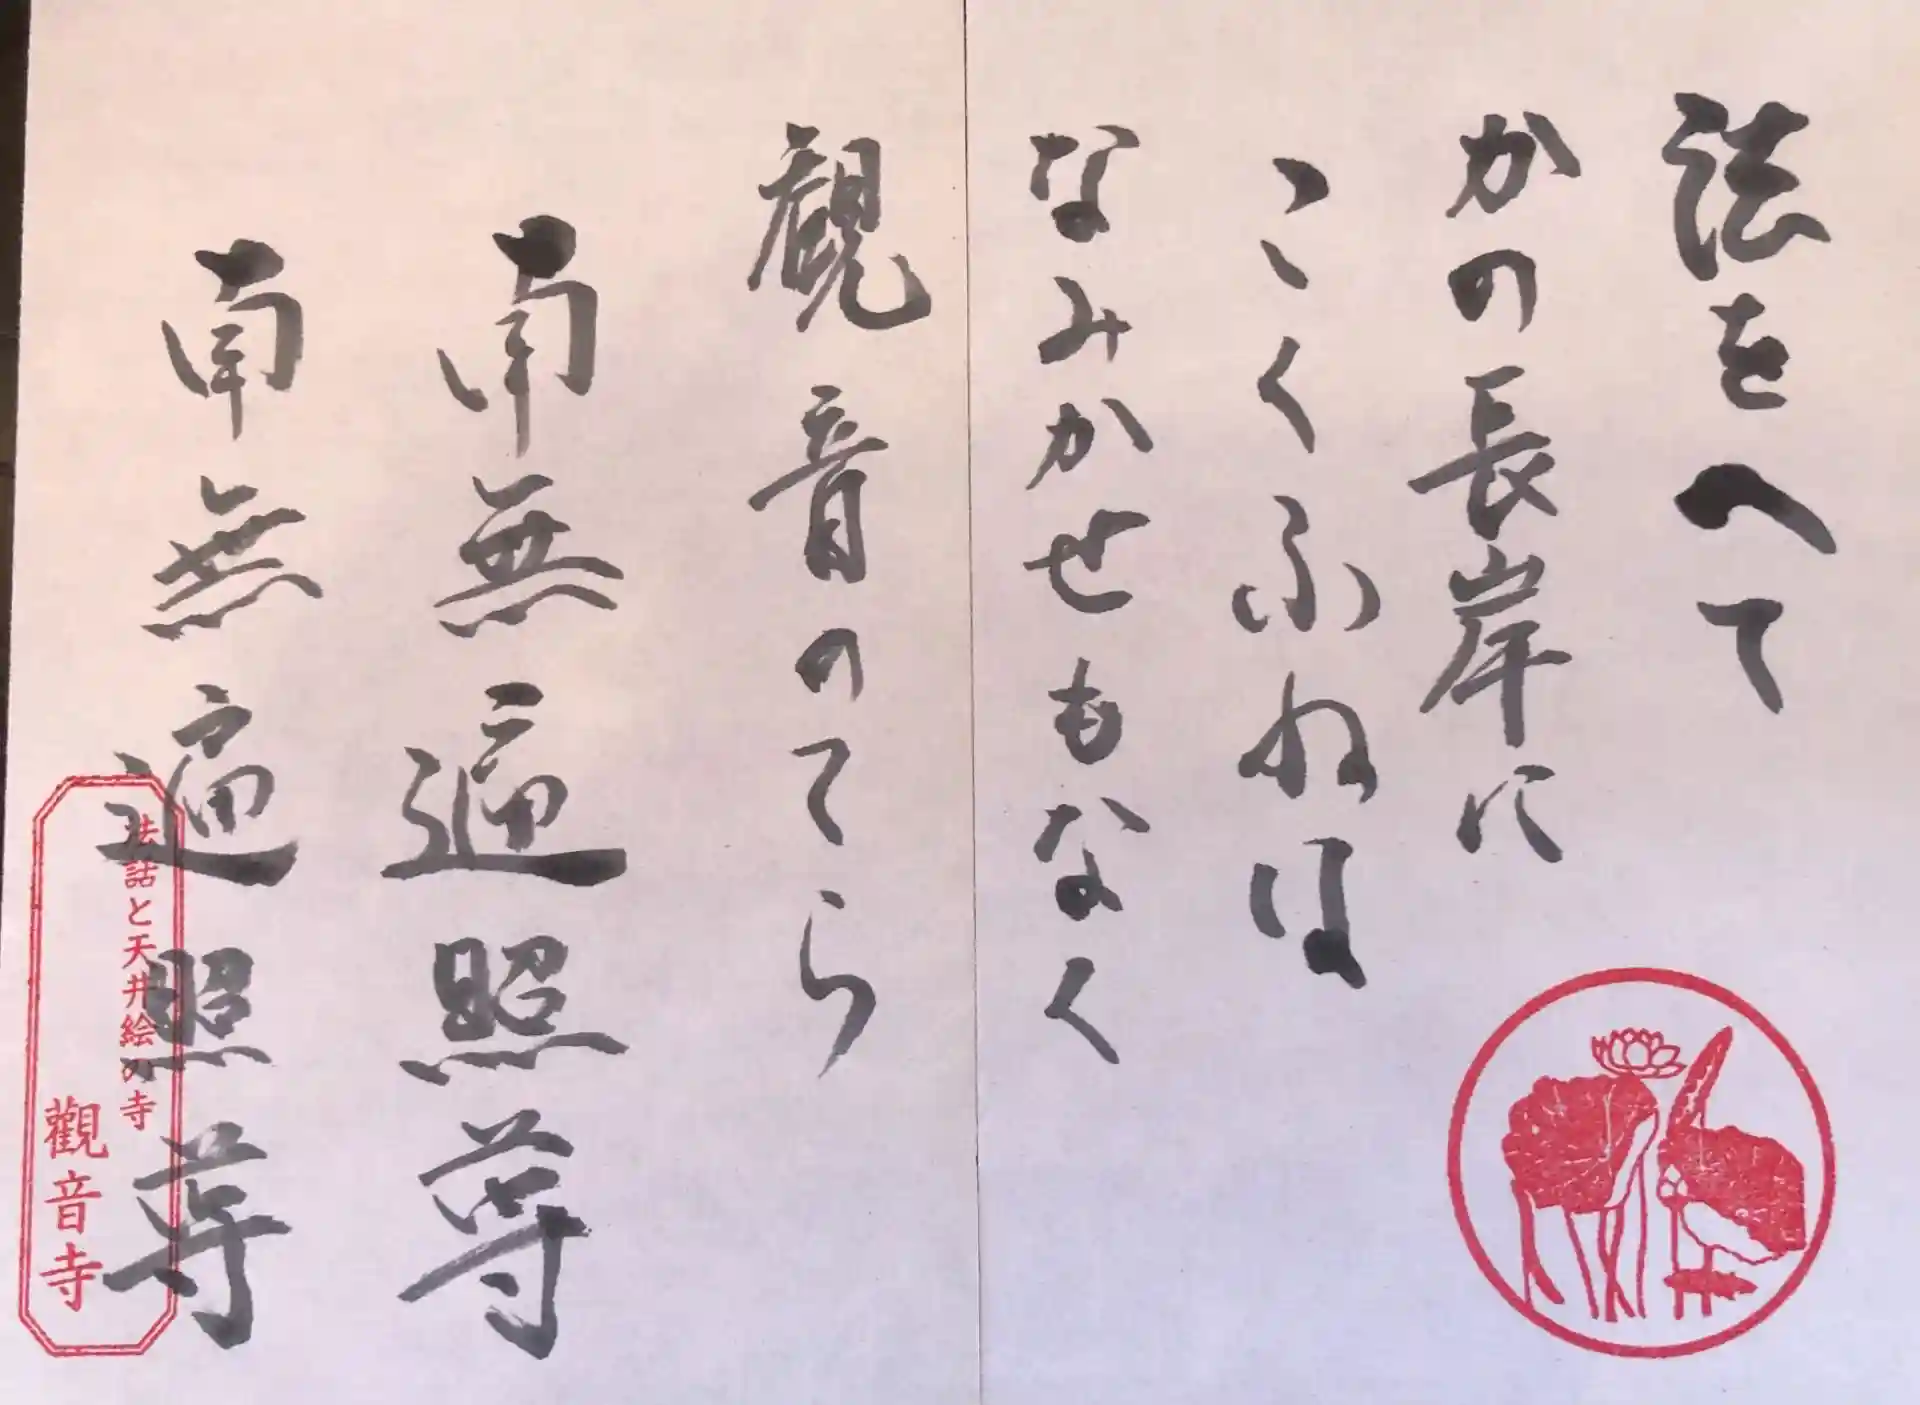 法をへて
かの長岸に
こくふねは
なみかせもなく
観音のてら
南無遍照尊
南無遍照尊
法話と天井絵の寺
觀音寺